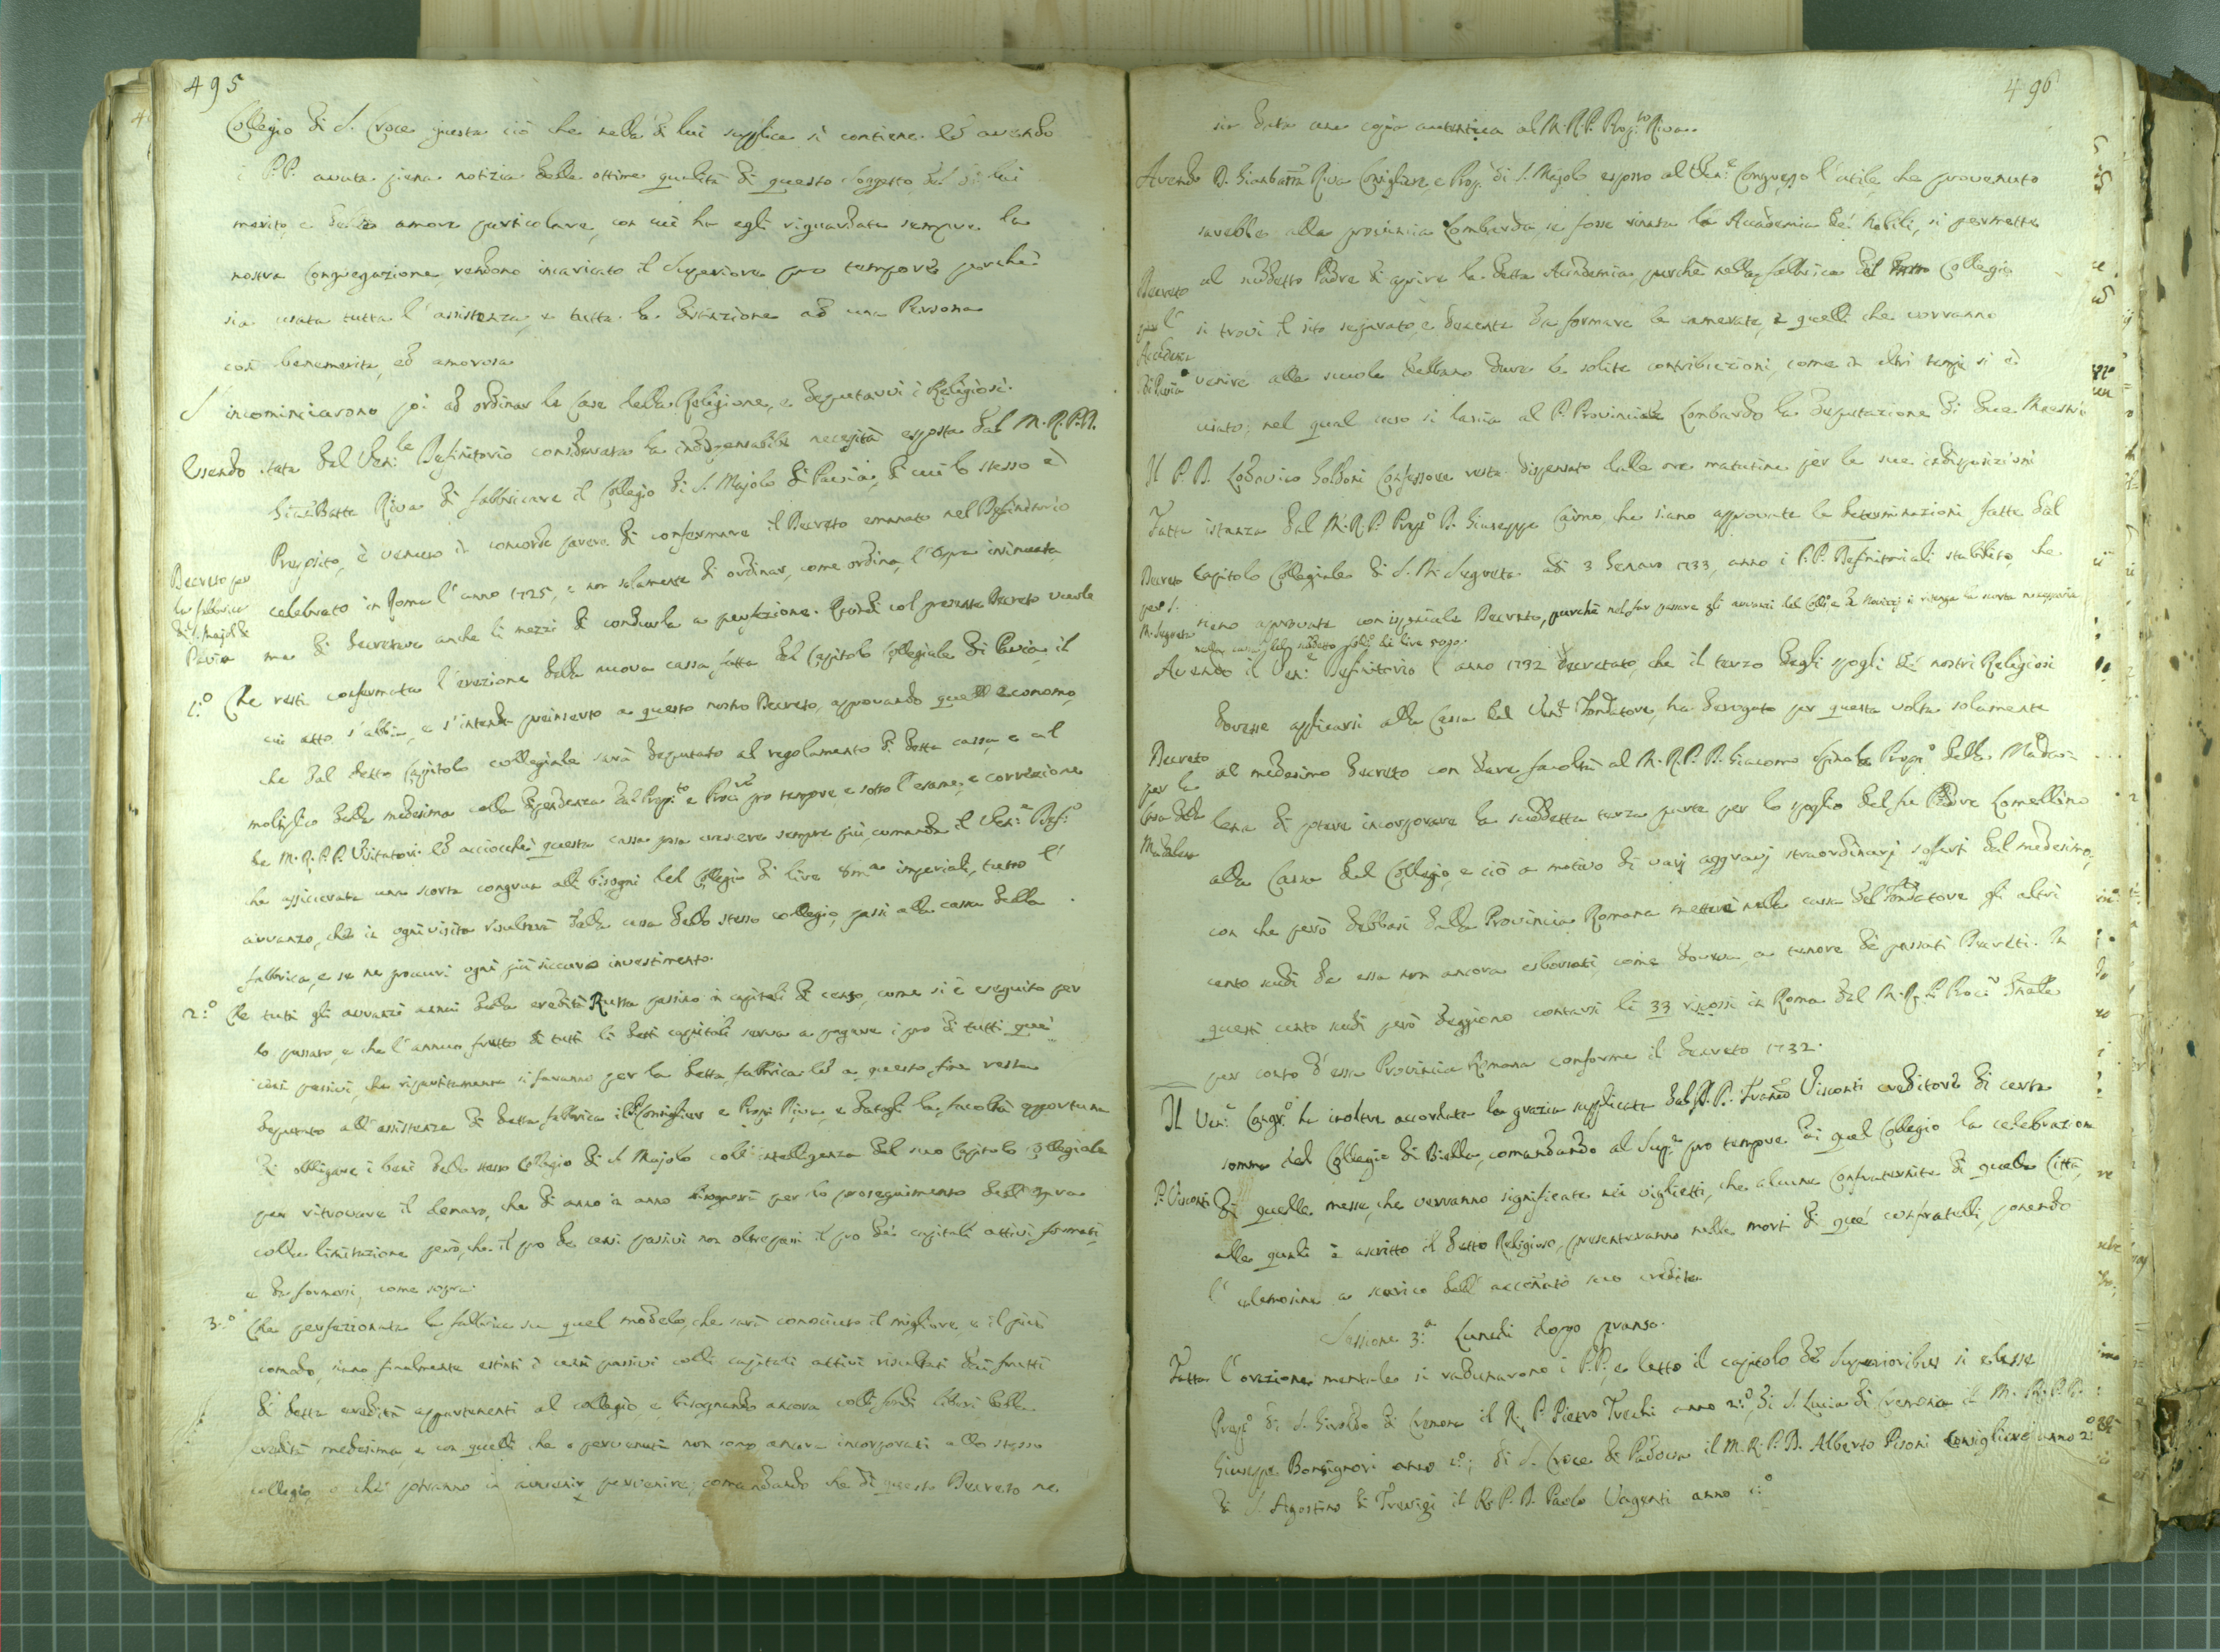 495
Collegio di S. Croce giusta ciò che nella di lui supplica si contiene. Ed avendo
i P.P. avuta piena notizia delle ottime qualità di questo soggetto del di lui
merito, e dello amore particolare, con cui ha egli riguardata sempre la
nostra Congregazione, rendono incaricato il Superiore pro tempore perchè
sia usata tutta l'assistenza, e tutta la distinzione ad una Persona
così benemerita, ed amorosa
S'incominciarono poi ad ordinar le Case della Religione, e deputarvi i Religiosi.
Essendo stata dal Ven:le Definitorio considerata la indispensabile necessità esposta dal M.R.P.D.
Gian Batta Riva di fabbricare il Collegio di S. Majolo di Pavia, di cui lo stesso è
Preposito, è venuto in concorde parere di confermare il Decreto emanato nel Definitorio
Decreto per
la fabbrica
di S. Majolo di
Pavia
celebrato in Roma l'anno 1725, e non solamente di ordinar, come ordina, l'Opra insinuata
ma di decretare anche li mezzi di condurla a perfezione. Quindi col presente Decreto vuole
1:o Che resti confermata l'erezione della nuova cassa fatta dal Capitolo Collegiale di Pavia, il
cui atto s'abbia, e s'intenda preinserto a questo nostro Decreto, approvando quell'Economo,
che dal detto Capitolo collegiale sarà deputato al regolamento di detta cassa, e al
moltiplico della medesima colla dipendenza dal Prep:to e Proc:re pro tempore, e sotto l'esame, e correzione
de M.R.P.P. Visitatori. Ed acciocchè questa cassa possa crescere sempre più, comanda il Ven:e Def:o
che assicurata una scorta congrua alli bisogni del Collegio di lire imperiali, tutto l'
avvanzo, che in ogni visita risulterà dalla cassa dello stesso collegio, passi alla cassa della
fabbrica, e se ne procuri ogni più sicuro investimento.
2:o Che tutti gli avvanzi annui della eredità Russa passino in capitali di censo, come si è eseguito per
lo passato, e che l'annuo frutto di tutti li detti capitali serva a pagare i pro di tutti que'
censi passivi, che ripartitamente si faranno per la detta fabbrica. Ed a questo fine resta
deputato all'assistenza di detta fabbrica il Consigliere e Prep. Riva, e datagli la facoltà opportuna
di obbligare i beni dello stesso Collegio di S. Majolo coll'intelligenza del suo Capitolo Collegiale
per ritrovare il denaro, che di anno in anno bisognerà per lo proseguimento dell'opra
colla limitazione però, che il pro de censi passivi non oltrepassi il pro de' capitali attivi formati,
e da formarsi, come sopra.
3:o Che perfezionata la fabbrica su quel modelo, che sarà conosciuto il migliore, e il più
comodo, siano finalmente estinti i censi passivi colli capitali attivi risultati dai frutti
di detta eredità appartenenti al collegio, e bisognando ancora colli fondi liberi della
eredità medesima, e con quelli che o pervenuti non sono ancora incorporati allo stesso
collegio, o che potranno in avvenir pervenire; comandando che di questo Decreto ne
496
sia data una copia autentica al M.R.P. Prep:to Riva.
Avendo D. Gianbatta Riva Consigliere, e Prep. di S. Majolo esposto al Ven:e Congresso l'utile, che provenuto
sarebbe alla provincia Lombarda, se fosse rimessa la Accademia de' Nobili, si permette
Decreto
per l'
Accademia
di Pavia
al suddetto Padre di aprire la detta Accademia, purchè nella fabbrica del Collegio
si trovi il sito separato, e decente da formare le camerate, e quelli che verranno
venire alla scuola debbano dare le solite contribuzioni, come in altri tempi si è
usato; nel qual caso si lascia al P. Provinciale Lombardo la deputazione di due Maestri.
Il P.D. Lodovico Goldoni Confessore resta dispensato dalle ore matutine per le sue indisposizioni
Fatta istanza dal M.R.P. Prep:o D. Giuseppe Cairo, che siano approvate le determinazioni fatte dal
Decreto
per S.
M. Segreta
Capitolo Collegiale di S. M. Segreta adi 3 Genaro 1733, anno i P.P. Definitoriali stabilito, che
sieno approvate con ispeciale Decreto, purchè nel far passare gli avvanzi del Coll:o de si ritenga la scorta necessaria
nella cassa del suddetto di lire
Avendo il Ven:e Definitorio l'anno 1732 decretato, che il terzo degli spogli de' nostri Religiosi
dovesse applicarsi alla Cassa del Ven:e Fondatore, ha derogato per questa volta solamente
Decreto
per la
Casa della
Madalena
al medesimo decreto con dare facoltà al M.R.P.D. Giacomo Spinola Prep:o della Mada-
lena di potere incorporare la suddetta terza parte per lo spoglio del fu Padre Lomellino
alla Cassa del Collegio, e ciò a motivo di varj aggravj straordinarj sofferti dal medesimo,
con che però debbasi dalla Provincia Romana mettere nella cassa del Fondatore gli altri
cento scudi da essa non ancora esborsati, come doveva, a tenore de' passati Decreti. In
questi cento scudi però deggiono contarsi li 33 riscossi in Roma dal M.R.P. Proc:r Gñale
per conto d'essa Provincia Romana conforme il decreto 1732.
Il Ven:e Congr:o ha inoltre accordata la grazia supplicata dal P. Franc:o Visconti creditore di certa
somma del Collegio di Biella, comandando al Sup:re pro tempore di quel Collegio la celebrazione
P. Visconti
di quelle messe, che verranno significate nei viglietti, che alcune Confraternite di quella Città,
alle quali è ascritto il detto Religioso, presenteranno nella morti di que' confratelli, ponendo
l'elemosina a scarico dell'accennato suo credito.
Sessione 3:a Lunedì dopo pranso.
Fatta l'orazione mentale si radunarono i P.P., e letto il capitolo de Superioribus si elesse
Prep:o di S. Giroldo di Cremona il R. P. Pietro Trechi anno 2:o, di S. Lucia di Cremona il M.R.P.D.
Giuseppe Bonsignori anno 2:o; di S. Croce di Padova il M.R.P.D. Alberto Pisoni Consigliere anno 2:o
di S. Agostino di Trevigi il R. P. D. Paolo Vagenti anno 1:o